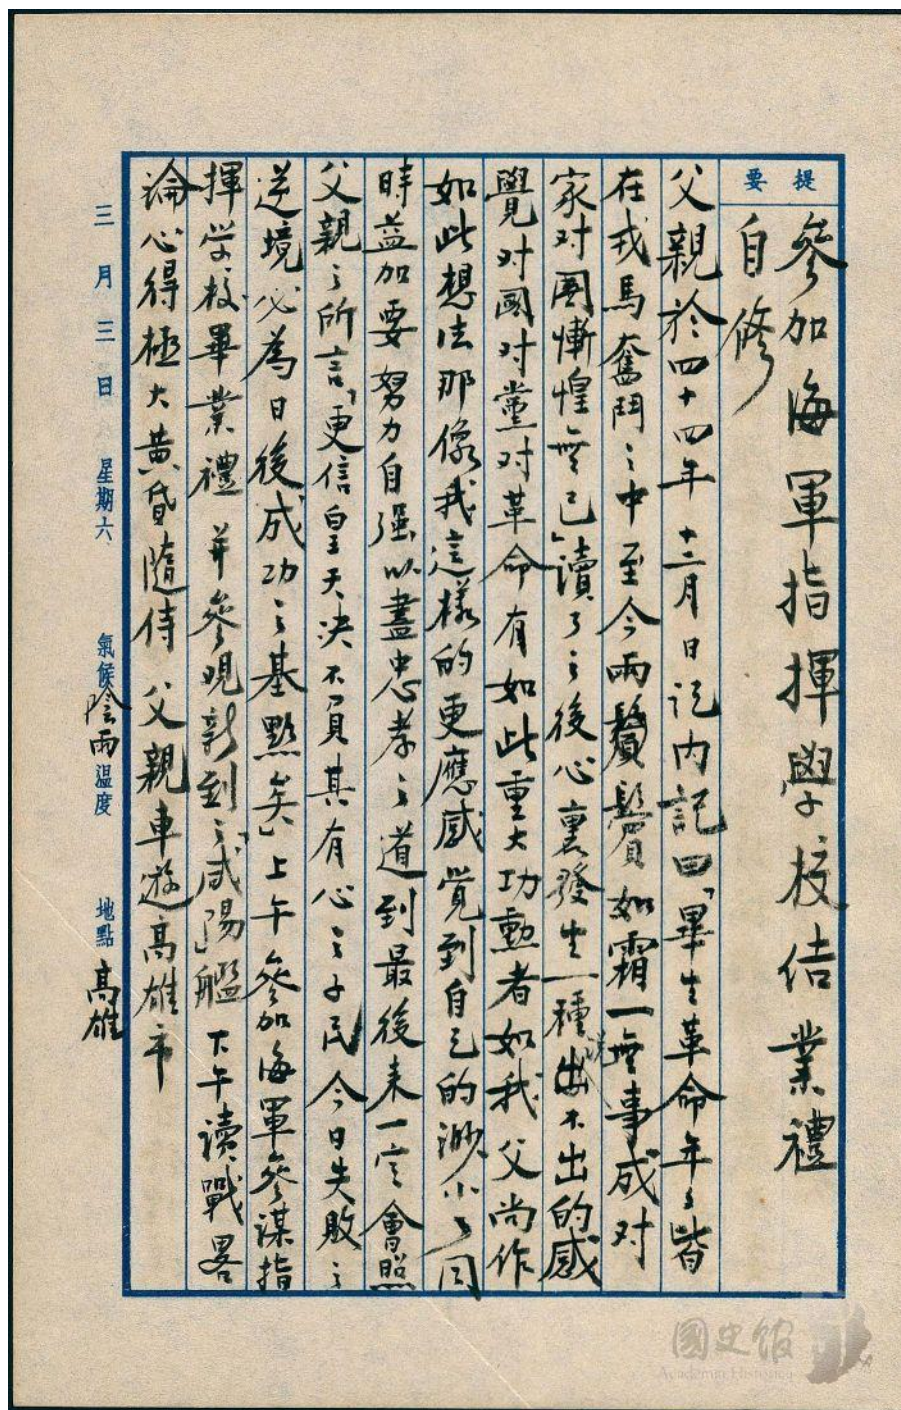 提要
參加海軍指揮學校结業禮
自修
父親於四十四年十二月日记内記曰「畢生革命年々皆
在戎馬奮鬥之中至今兩鬢鬢如霜一無事成对
家对國慚惶無已」讀了之後心裏發生一種說不出的感
覺对國对黨对革命有如此重大功勳者如我父尚作
如此想法那像我這樣的更應感覺到自己的渺小了同
時益加要努力自强以盡忠孝之道到最後来一定會照
父親之所言「更信皇天決不負其有心之子民今日失敗之
逆境必為日後成功之基點矣」上午參加海軍參謀指
揮学校畢業禮并參观新到之「咸陽」艦下午讀戰畧
論心得極大黄昏隨侍 父親車遊高雄市
三月三日 星期六 氣候陰雨 温度 地點高雄
國史館
Academia Historica